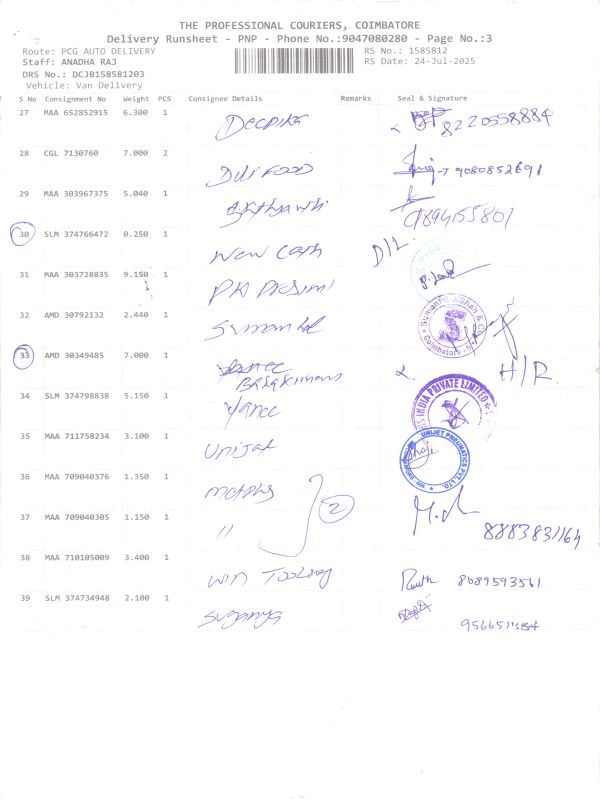 THE PROFESSIONAL COURIERS, COIMBATORE
Delivery Runsheet - PNP - Phone No.:9047080280 - Page No.:3
Route: PCG AUTO DELIVERY
RS No.: 1585812
Staff: ANADHA RAJ
RS Date: 24-Jul-2025
DRS No.: DCJB158581203
Vehicle: Van Delivery
S No Consignment No Weight PCS Consignee Details Remarks Seal & Signature
27 MAA 652852915 6.300 1 Deepika 8220558884
28 CGL 7130760 7.000 2 FOOD 9080852691
29 MAA 303967375 5.040 1
30 SLM 374766472 0.250 1 New D/L
31 MAA 303728835 9.150 1
32 AMD 30792132 2.440 1 Coimbatore
33 AMD 30349485 7.000 1 H/R
34 SLM 374798838 5.150 1 Vance INDIA PRIVATE LIMITED
35 MAA 711758234 3.100 1 Unijet UNIJET PNEUMATICS PVT LTD
36 MAA 709040376 1.350 1 2
37 MAA 709040305 1.150 1 " 8883831164
38 MAA 710105009 3.400 1 Win Tooling 8089593561
39 SLM 374734948 2.100 1